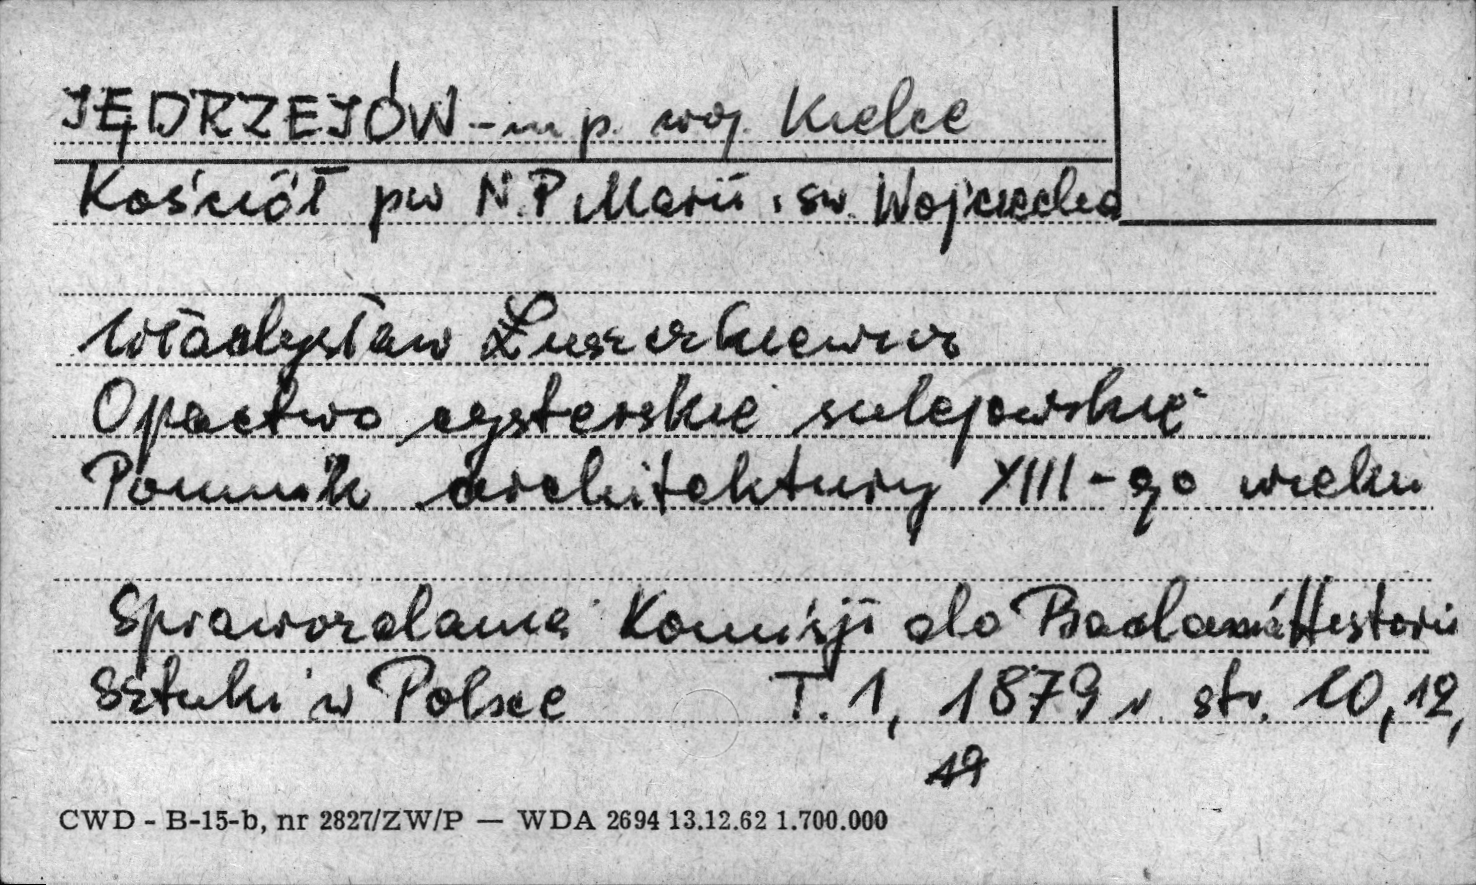 JĘDRZEJÓW - m. p. woj. Kielce
Kościół pw N.P Marii i św. Wojciecha
Władysław Łuszczkiewicz
Opactwo cysterskie sulejowskie
Pomnik architektury XIII-go wieku
Sprawozdania Komisji do Badania Historii
Sztuki w Polsce T. 1, 1879 r. str. 10, 12,
19
CWD - B-15-b, nr 2827/ZW/P — WDA 2694 13.12.62 1.700.000